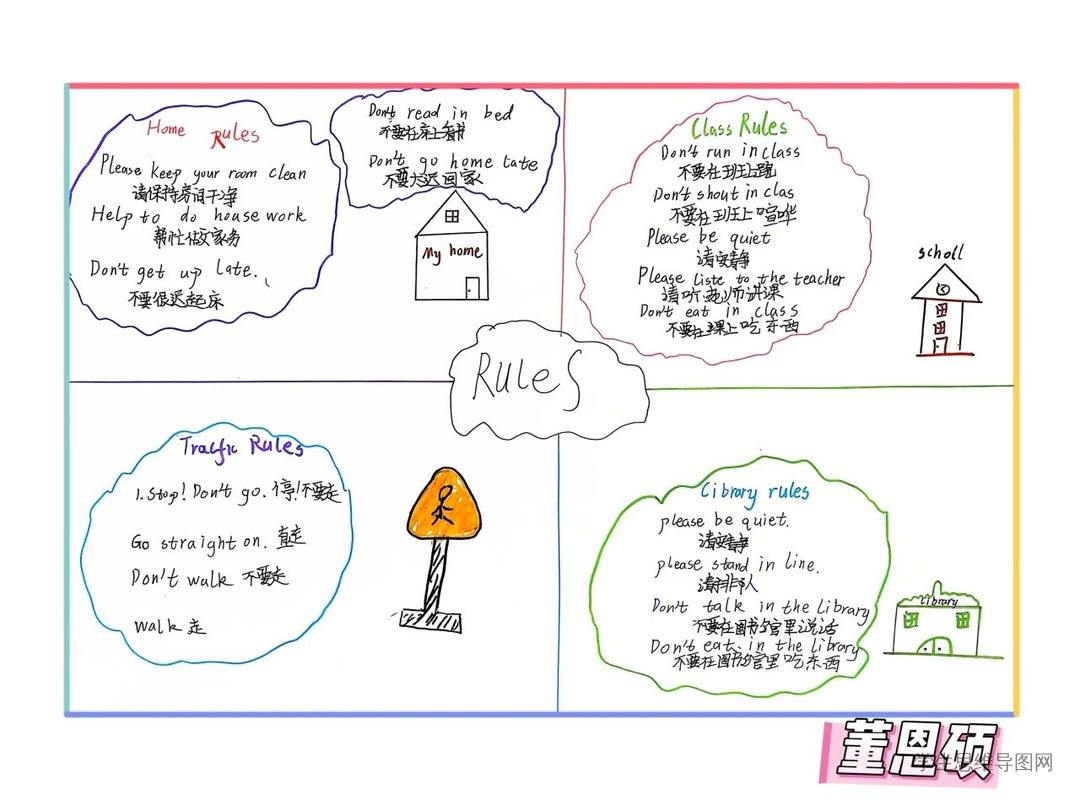 Home Rules
Please keep your room clean
请保持房间干净
Help to do house work
帮忙做家务
Don't get up late.
不要很迟起床
Don't read in bed
不要在床上看书
Don't go home tate
不要太迟回家
My home
Class Rules
Don't run in class
不要在班上跑
Don't shout in clas
不要在班上喧哗
Please be quiet
请安静
Please liste to the teacher
请听老师讲课
Don't eat in class
不要在课上吃东西
scholl
Rules
Traffic Rules
1. Stop! Don't go. 停!不要走
Go straight on. 直走
Don't walk 不要走
walk 走
Library rules
please be quiet.
请安静
please stand in line.
请排队
Don't talk in the library
不要在图书馆里说话
Don't eat in the library
不要在图书馆里吃东西
library
董恩硕
学生思维导图网